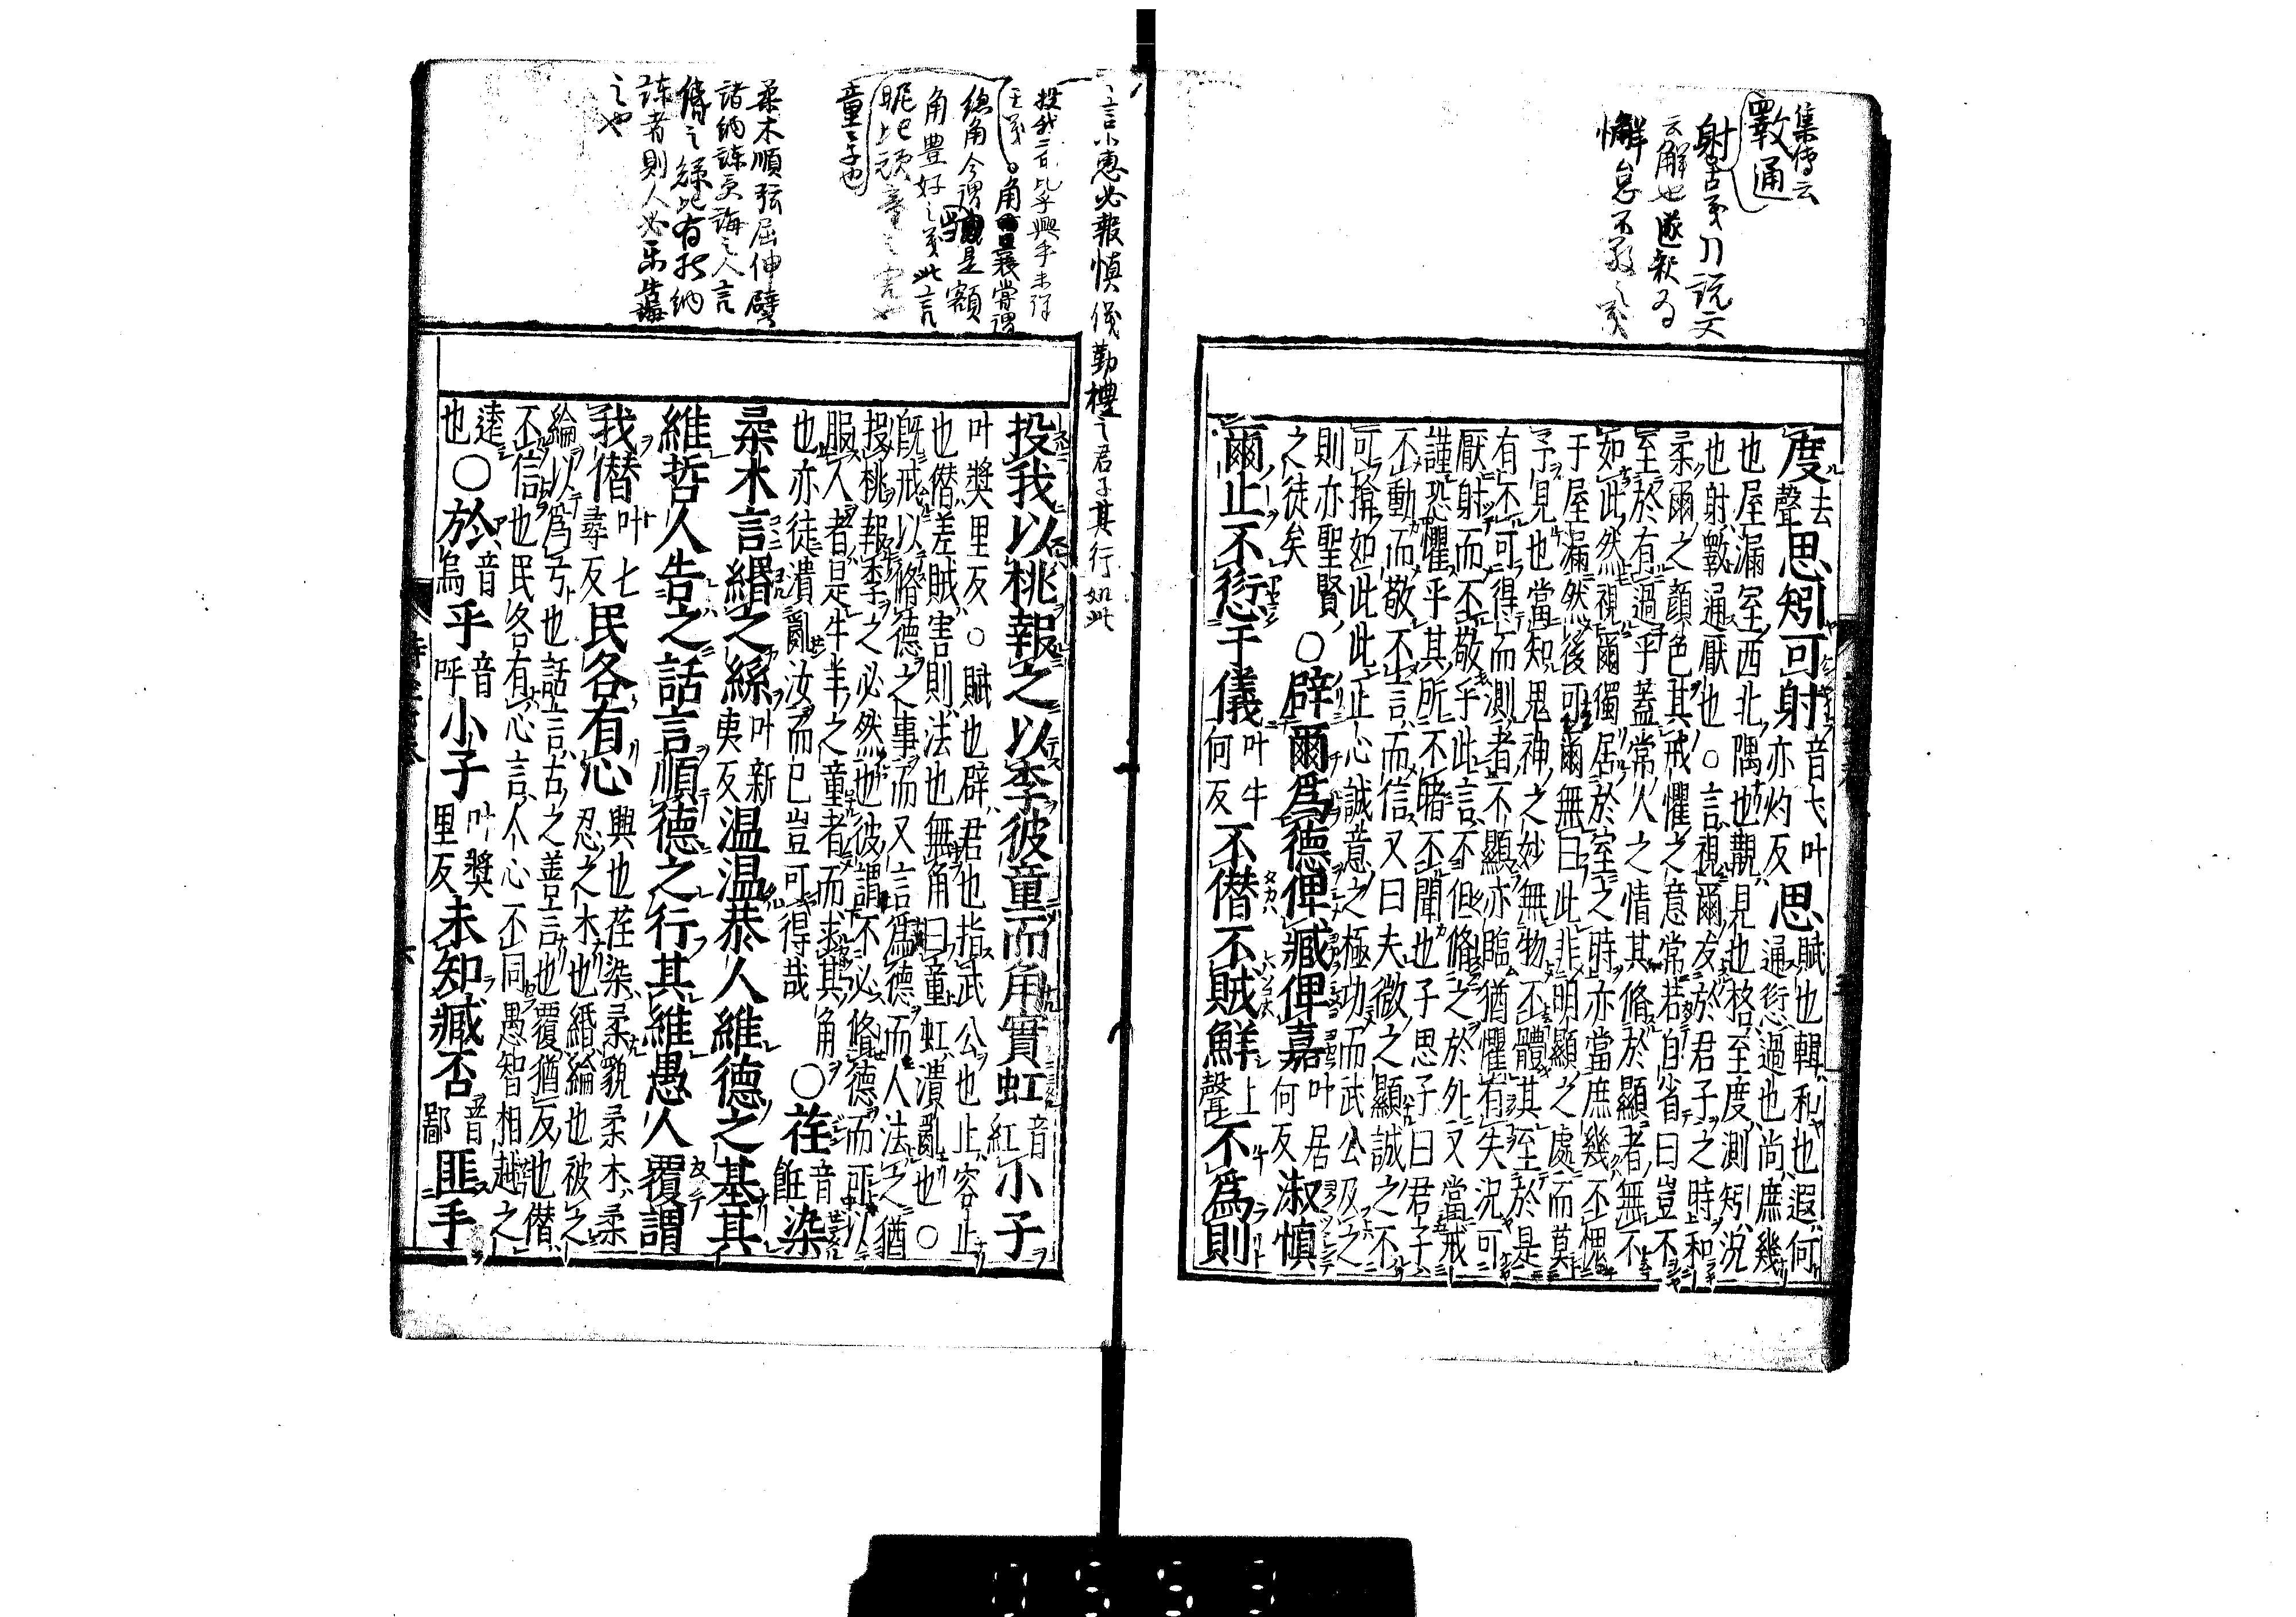 集傳云
斁通
度去聲思矧可射音弋叶亦灼反思賦也輯和也遐何
也屋漏室西北隅也覯見也格至度測矧況
也射斁通厭也○言視爾友於君子之時和
柔爾之顏色其戒懼之意常若自省曰豈不
至於有過乎蓋常人之情其脩於顯者無不
如此然視爾獨居於室之時亦當庶幾不愧
于屋漏然後可爾無曰此非明顯之處而莫
予見也當知鬼神之妙無物不體其至於是
有不可得而測者不顯亦臨猶懼有失況可
厭射而不敬乎此言不但脩之於外又當戒
謹恐懼乎其所不睹不聞也子思子曰君子
不動而敬不言而信又曰夫微之顯誠之不
可揜如此此正心誠意之極功而武公及之
則亦聖賢之徒矣○辟爾爲德俾臧俾嘉叶居何反淑愼
爾止不愆于儀叶牛何反不僭不賊鮮上聲不爲則
言小惠必報慎儀勤禮之君子其行如此
童子也
柔木順弦屈伸譬
諫者則人必樂告誨
之也
投我以桃報之以李彼童而角實虹音紅小子
叶獎里反○賦也辟君也指武公也止容止
也僭差賊害則法也無角曰童虹潰亂也○
旣戒以脩德之事而又言爲德而人法之猶
投桃報李之必然也彼謂不必脩德而可以
服人者是牛羊之童者而求其角
也亦徒潰亂汝而已豈可得哉○荏音飪染
柔木言緡之絲叶新夷反溫溫恭人維德之基其
維哲人告之話言順德之行其維愚人覆謂
我僭叶七尋反民各有心興也荏染柔貌柔木柔
忍之木也緡綸也被之
綸以爲弓也話言古之善言也覆猶反也僭
不信也民各有心言人心不同愚智相越之
遠也○於音烏乎音呼小子叶獎里反未知臧否音鄙匪手